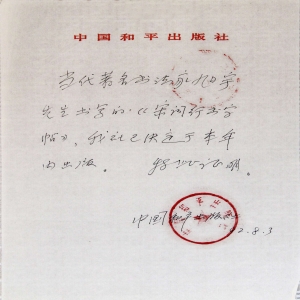 中国和平出版社
当代著名书法家
先生书写的《宋词行书字
帖》，我社已决定于本年
内出版。 特此证明。
中国和平出版社
2.8.3